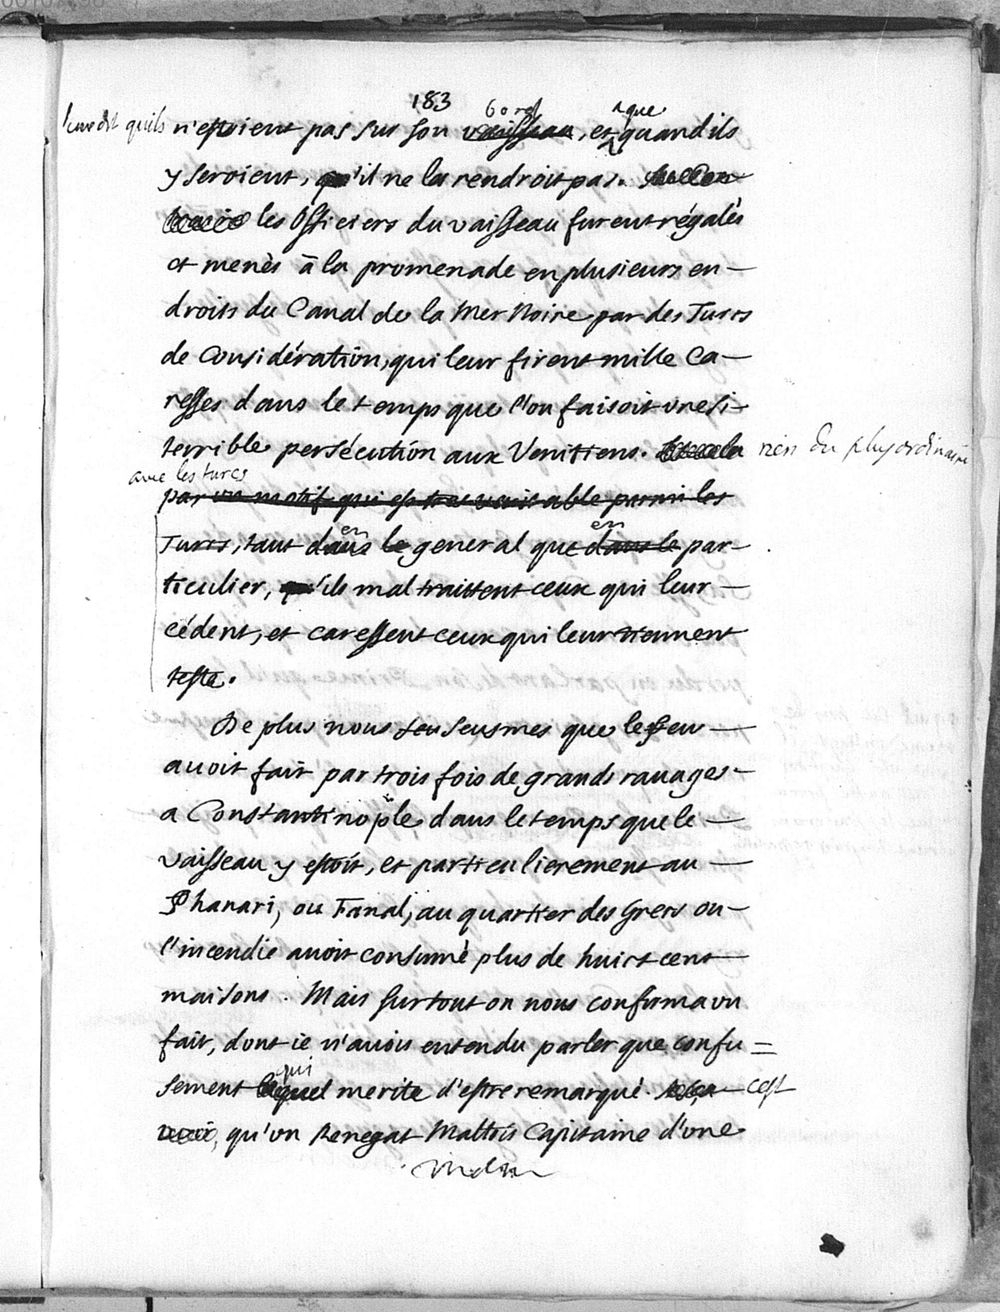 183
bord
que
leur dit quils n'estoient pas sur son vaisseau, et quand ils
y seroient, qu'il ne les rendroit pas.
les Officiers du vaisseau furent régalés
et menés à la promenade en plusieurs en-
droits du Canal de la Mer Noire par des Turcs
de considération, qui leur firent mille ca-
resses dans le temps que l'on faisoit une si
terrible persécution aux Venitiens. rien du plus ordinaire
avec les turcs
par un motif qui est tres veritable parmi les
en
en
Turcs, tant dans le general que dans le par-
ticulier, qu'ils maltraittent ceux qui leur
cédent, et caressent ceux qui leur tiennent
teste.
De plus nous sceusmes que le feu
avoit fait par trois fois de grands ravages
a Constantinople, dans le temps que le
vaisseau y estoit, et particulierement au
Phanari, ou Fanal, au quartier des Grecs ou
l'incendie avoit consumé plus de huict cent
maisons. Mais surtout on nous confirma un
fait, dont ie n'avois entendu parler que confu=
qui
sement lequel merite d'estre remarqué. cest
qu'un Renegat Maltois Capitaine d'une